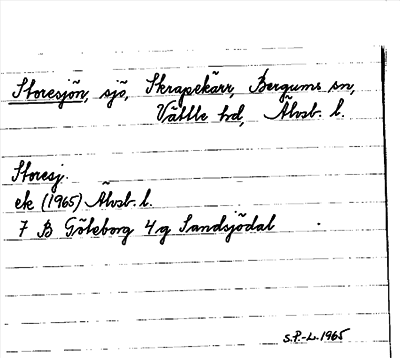 Storesjön, sjö, Skrapekärr, Bergums sn,
Vättle hd, Älvsb. l.
Storesj.
ek (1965) Älvsb. l.
7 B Göteborg 4 g Sandsjödal
S.P.-L. 1965